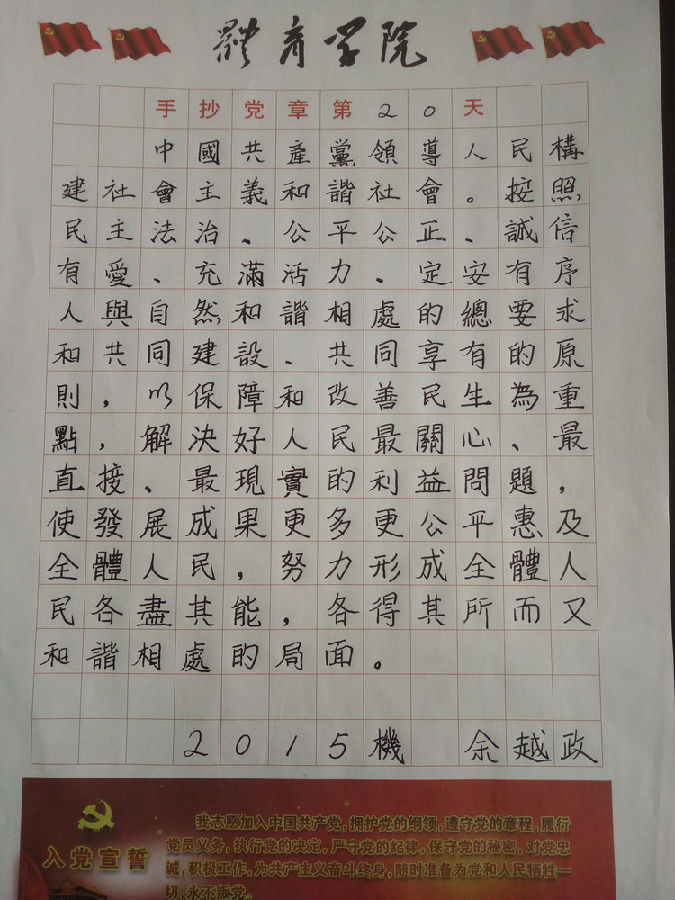 體育学院
手抄党章第20天
中國共產黨領導人民構
建社會主義和諧社會。按照
民主法治、公平公正、誠信
有愛、充滿活力、定安有序
人與自然和諧相處的總要求
和共同建設、共同享有的原
則，以保障和改善民生為重
點，解決好人民最關心、最
直接、最現實的利益問題，
使發展成果更多更公平惠及
全體人民，努力形成全體人
民各盡其能，各得其所而又
和諧相處的局面。
2015機 余越政
入党宣誓
我志愿加入中国共产党，拥护党的纲领，遵守党的章程，履行
党员义务，执行党的决定，严守党的纪律，保守党的秘密，对党忠
诚，积极工作，为共产主义奋斗终身，随时准备为党和人民牺牲一
切，永不叛党。